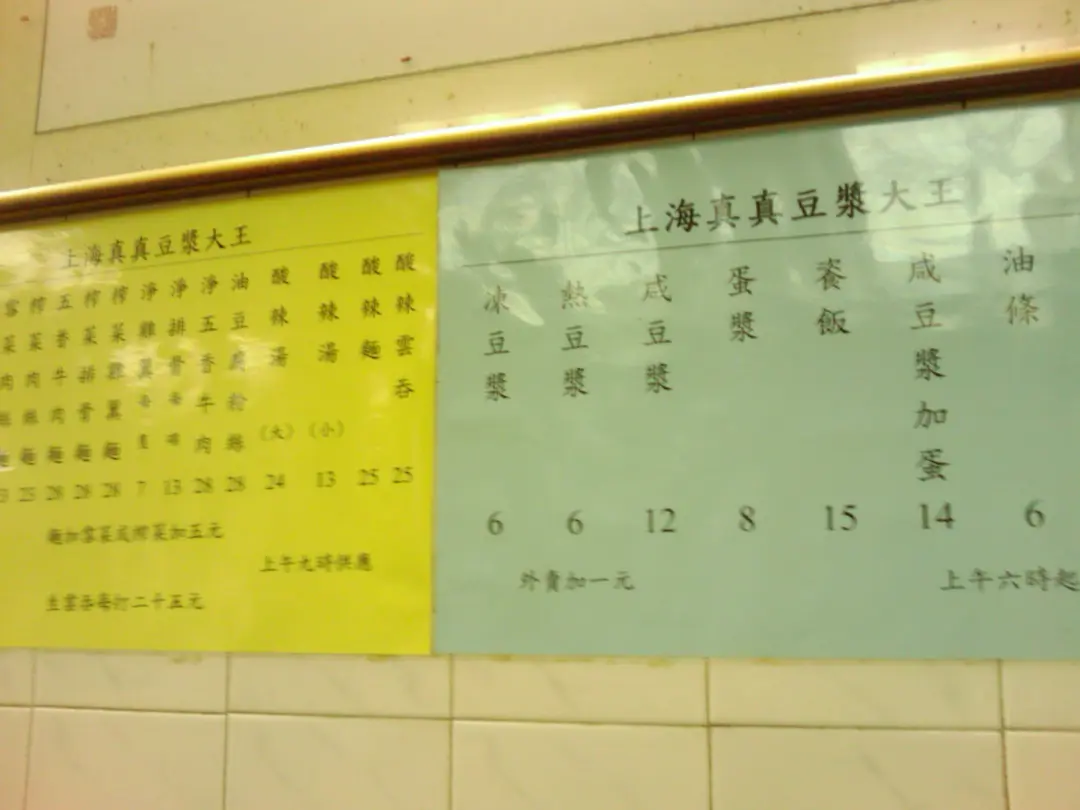 上海真真豆漿大王
酸辣雲吞 25
酸辣麵 25
酸辣湯（小） 13
酸辣湯（大） 24
油豆腐粉絲 28
淨五香牛肉 28
淨排骨 13
淨雞翼 7
榨菜雞翼麵 28
榨菜排骨麵 28
五香牛肉麵 28
榨菜肉絲麵 25
菜肉絲
麵加雪菜或榨菜加五元
上午九時供應
生雲吞每打二十五元
上海真真豆漿大王
油條 6
咸豆漿加蛋 14
粢飯 15
蛋漿 8
咸豆漿 12
熱豆漿 6
凍豆漿 6
外賣加一元
上午六時起